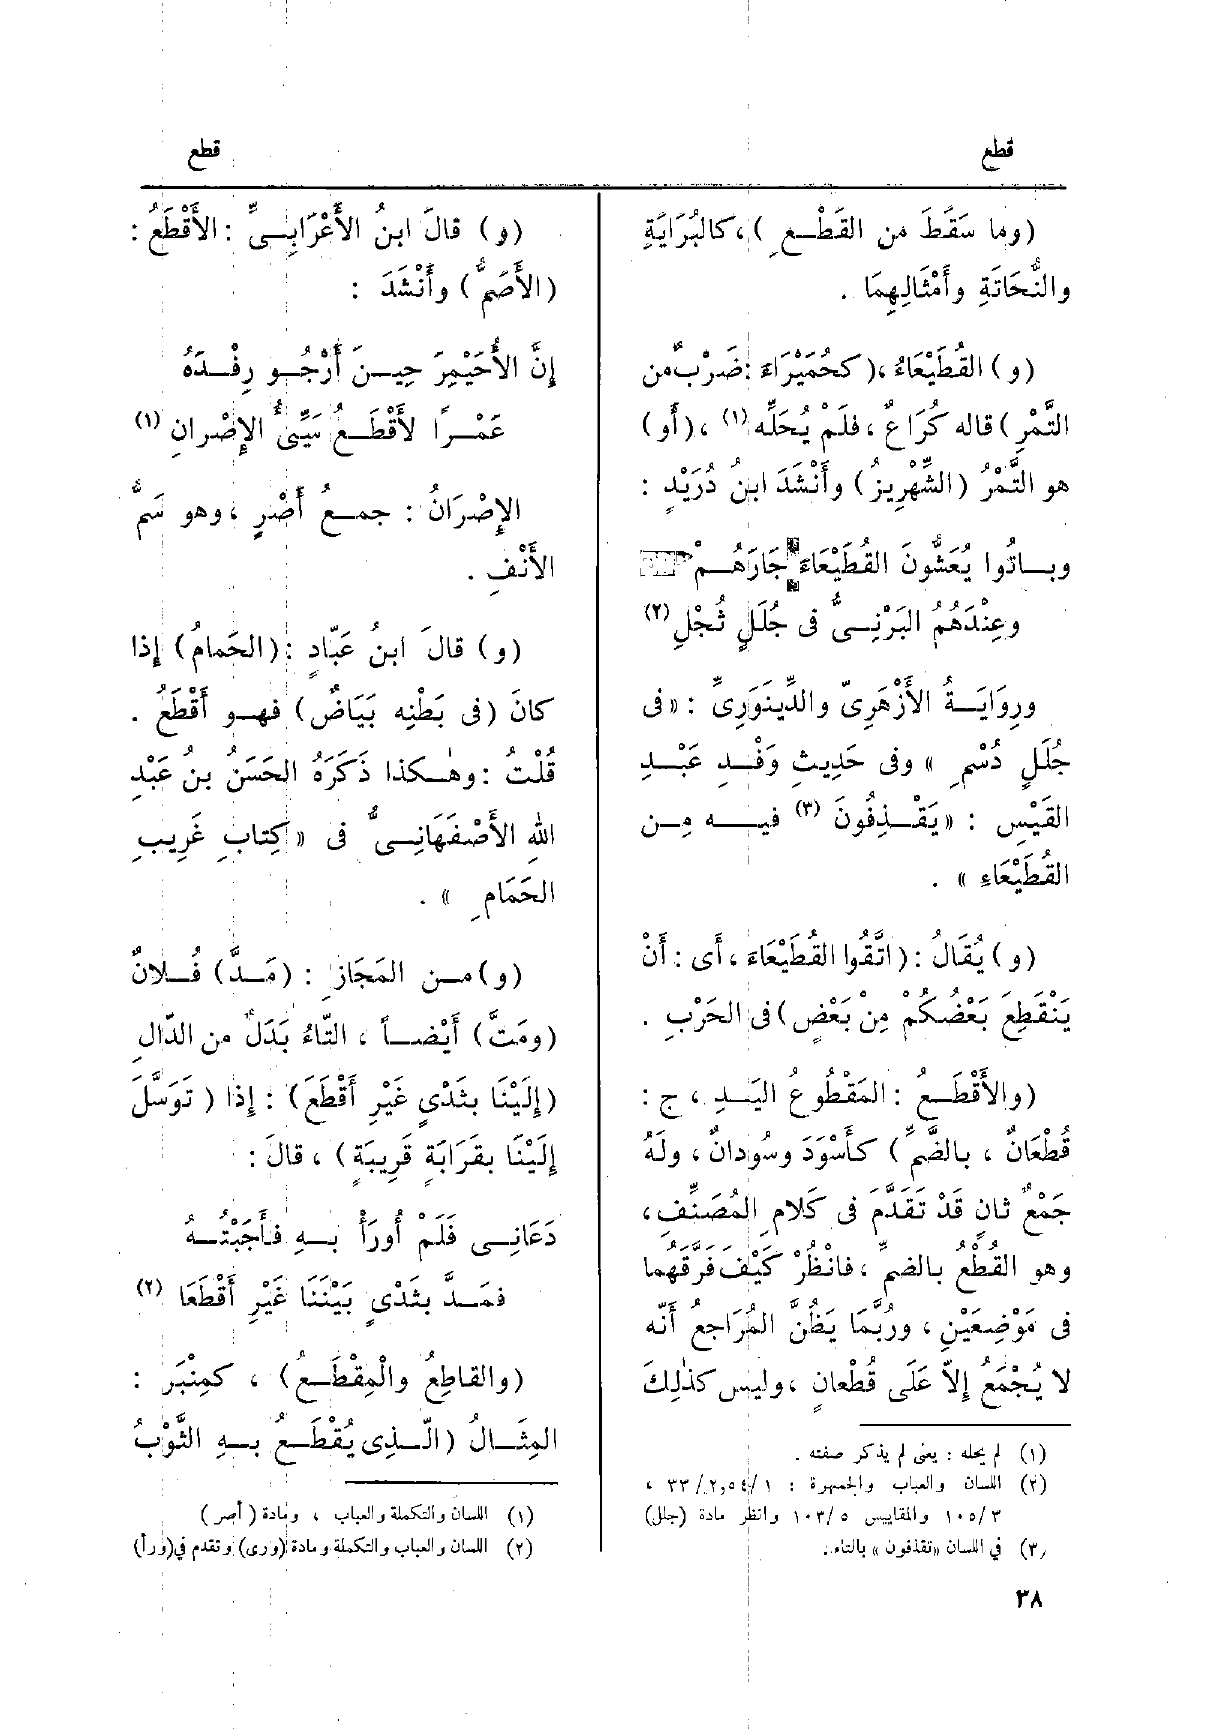 قطع
قطع
(وما سَقَطَ من القَطْعِ)، كالبُرَايَةِ
والنُّحَاتَةِ وأَمْثَالِهِمَا .
(و) القُطَيْعَاءُ ، (كحُمَيْرَاءَ : ضَرْبٌ من
التَّمْرِ) قاله كُرَاعٌ ، فلَمْ يُحَلِّه (١) ، (أَو)
هو التَّمْرُ (الشِّهْرِيزُ) وأَنْشَدَ ابنُ دُرَيْدٍ :
وبــاتُوا يُعَشُّونَ القُطَيْعَاءَ جَارَهُــمْ
وعِنْدَهُمُ البَرْنِــىُّ فى جُلَلٍ ثُجْلِ (٢)
ورِوَايَــةُ الأَزْهَرِىّ والدِّينَوَرِىِّ : «فى
جُلَلٍ دُسْمِ » وفى حَدِيثِ وَفْــدِ عَبْــدِ
القَيْسِ : «يَقْــذِفُونَ (٣) فيــه مِــن
القُطَيْعَاءِ » .
(و) يُقَالُ : (اتَّقُوا القُطَيْعَاءَ ، أَى : أَنْ
يَنْقَطِعَ بَعْضُكُمْ مِنْ بَعْضٍ) فى الحَرْبِ .
(والأَقْطَــعُ : المَقْطُوعُ اليَــدِ ، ج :
قُطْعَانٌ ، بالضَّمِّ) كأَسْوَدَ وسُودانٌ ، ولَهُ
جَمْعٌ ثانٍ قَدْ تَقَدَّمَ فى كَلامِ المُصَنِّفِ،
وهو القُطْعُ بالضمِّ ، فانْظُرْ كَيْفَ فَرَّقَهُما
فى مَوْضِعَيْنِ ، ورُبَّمَا يَظُنُّ المُرَاجعُ أَنّه
لا يُجْمَعُ إِلاّ عَلَى قُطْعانٍ ، وليس كذٰلِكَ
(١) لم يحله : يعنى لم يذكر صفته .
(٢) اللسان والعباب والجمهرة : ٢،٥٤/١ /٣٣ ،
١٠٥/٣ والمقاييس ١٠٣/٥ وانظر مادة (جلل)
(٣) فى اللسان «تقذفون» بالتاء .
(و) قالَ ابنُ الأَعْرَابِــىِّ : الأَقْطَعُ :
(الأَصَمُّ) وأَنْشَدَ :
إِنَّ الأُحَيْمِرَ حِيــنَ أَرْجُــو رِفْــدَهُ
عَمْــرًا لأَقْطَــعُ سَيِّئُ الإِصْرانِ (١)
الإِصْرَانُ : جمــع أَصْرٍ ، وهو سَمُّ
الأَنْفِ .
(و) قالَ ابنُ عَبّادٍ : (الحَمامُ) إِذا
كانَ (فى بَطْنِه بَيَاضٌ) فهــو أَقْطَعُ .
قُلْتُ : وهٰــكذا ذَكَرَهُ الحَسَنُ بن عَبْدِ
اللهِ الأَصْفَهَانِــىُّ فى « كِتابِ غَرِيبِ
الحَمَامِ » .
(و) مــن المَجَازِ : (مَــدَّ) فُــلانٌ
(ومَتَّ) أَيْضــاً ، التّاءُ بَدَلٌ من الدّالِ
(إِلَيْنَا بثَدْىٍ غَيْرِ أَقْطَعَ) : إِذا ( تَوَسَّلَ
إِلَيْنَا بقَرَابَةٍ قَرِيبَةٍ) ، قالَ :
دَعَانِــى فَلَمْ أُورَأْ بــهِ فأَجَبْتُــهُ
فمَــدَّ بثَدْىٍ بَيْنَنَا غَيْرِ أَقْطَعَا (٢)
(والقاطِعُ والْمِقْطَــعُ) ، كمِنْبَرٍ :
المِثَــالُ (الَّــذِى يُقْطَــعُ بــهِ الثَّوْبُ
(١) اللسان والتكملة والعباب ، ومادة (أصر)
(٢) اللسان والعباب والتكملة ومادة (ورى) وتقدم فى (ورأ)
٣٨